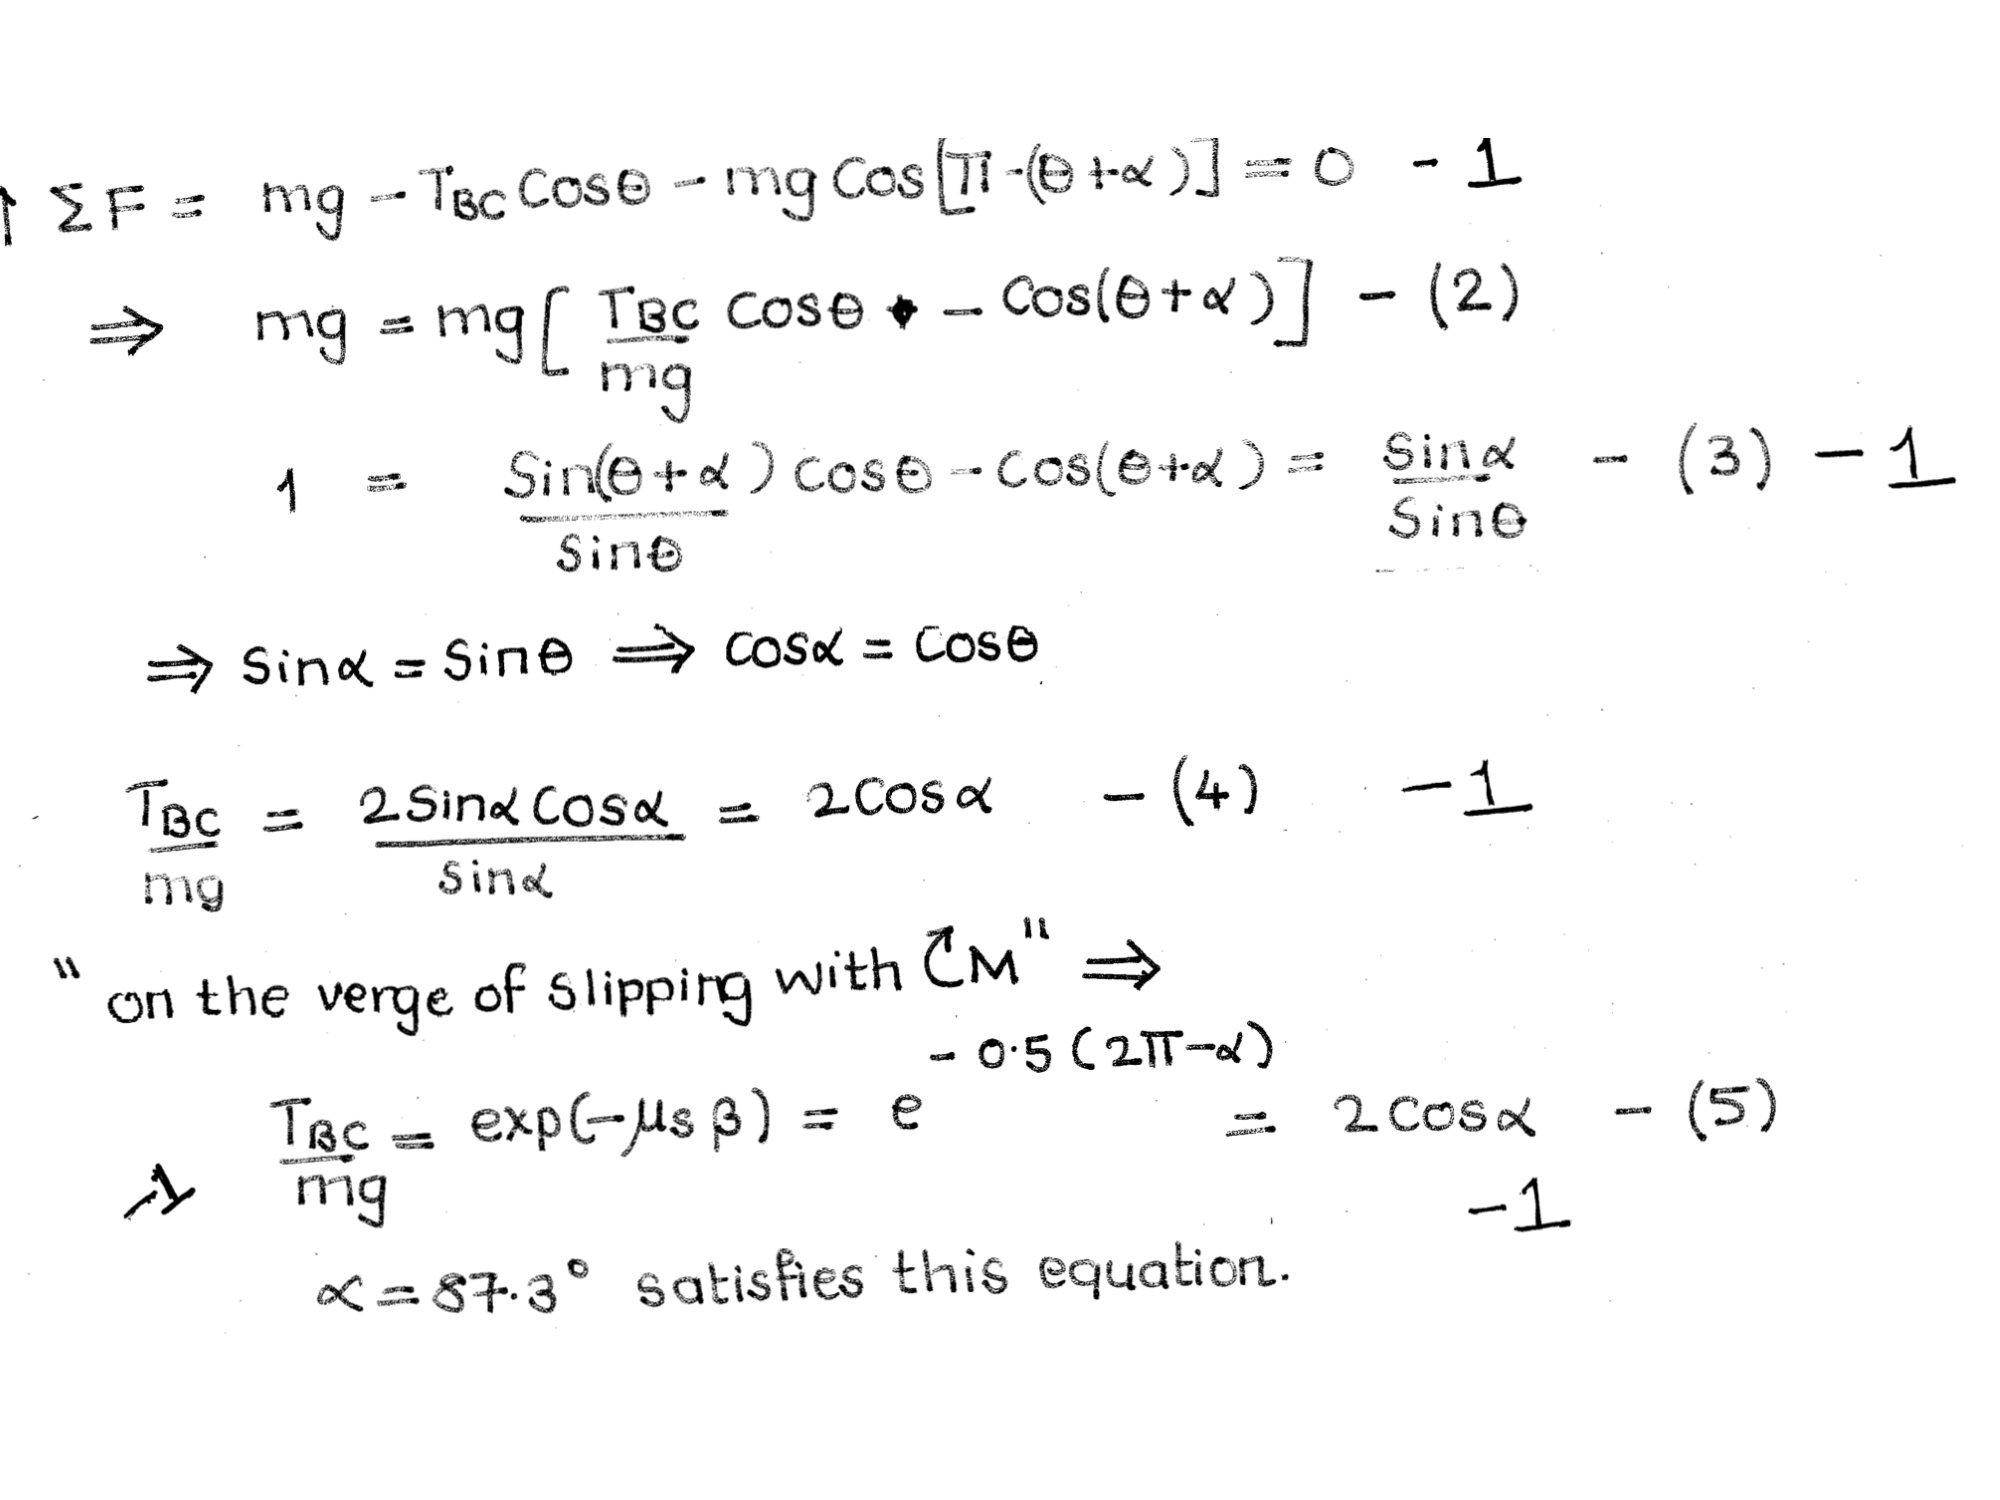 ↑ ΣF = mg - T_BC Cosθ - mg Cos[π-(θ+α)] = 0 - 1
⇒ mg = mg[T_BC/mg Cosθ - Cos(θ+α)] - (2)
1 = Sin(θ+α)/Sinθ Cosθ - Cos(θ+α) = Sinα/Sinθ - (3) - 1
⇒ Sinα = Sinθ ⇒ Cosα = Cosθ
T_BC/mg = 2SinαCosα/Sinα = 2Cosα - (4) - 1
"on the verge of slipping with ↻M" ⇒
T_BC/mg = exp(-μs β) = e^(-0.5(2π-α)) = 2Cosα - (5)
-1 -1
α = 87.3° satisfies this equation.